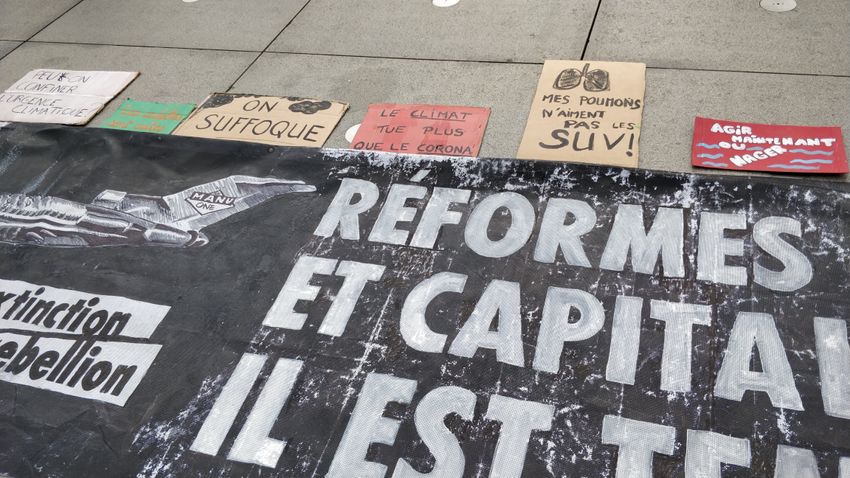 PEUT ON
CONFINER
L'URGENCE
CLIMATIQUE
ON
SUFFOQUE
LE CLIMAT
TUE PLUS
QUE LE CORONA
MES POUMONS
N'AIMENT
PAS LES
SUV!
AGIR
MAINTENANT
OU
NAGER
MANU
ONE
xtinction
ebellion
RÉFORMES
ET CAPITA
IL EST TE